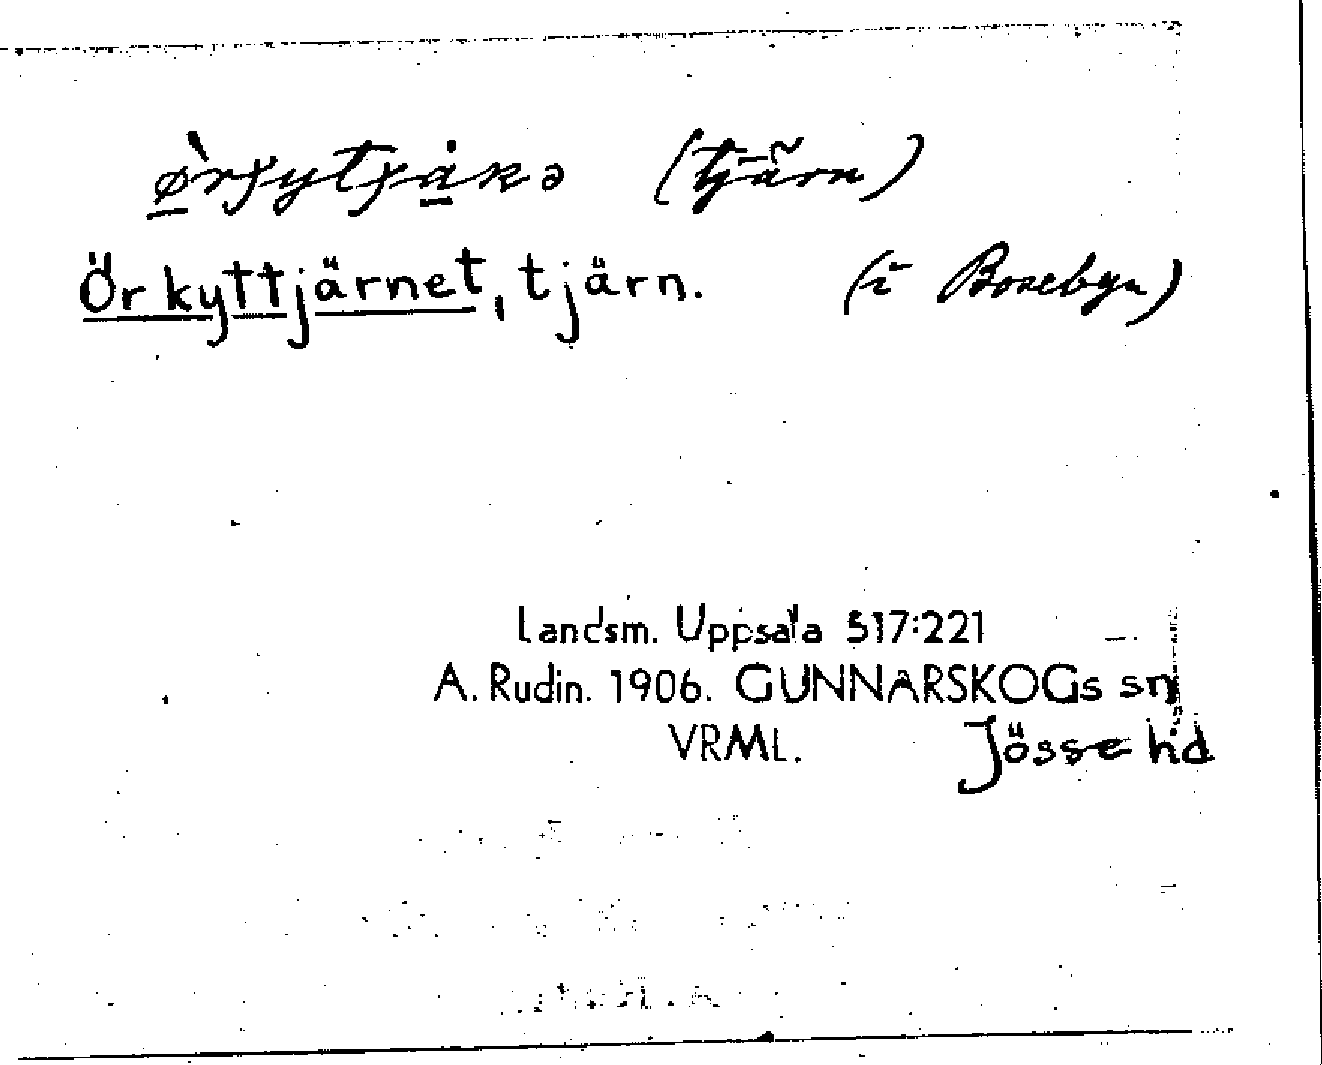 (tjärn)
Örkyttjärnet, tjärn. (i Bosebyn)
Landsm. Uppsala 517:221
A. Rudin. 1906. GUNNARSKOGs sn
VRML. Jösse hd